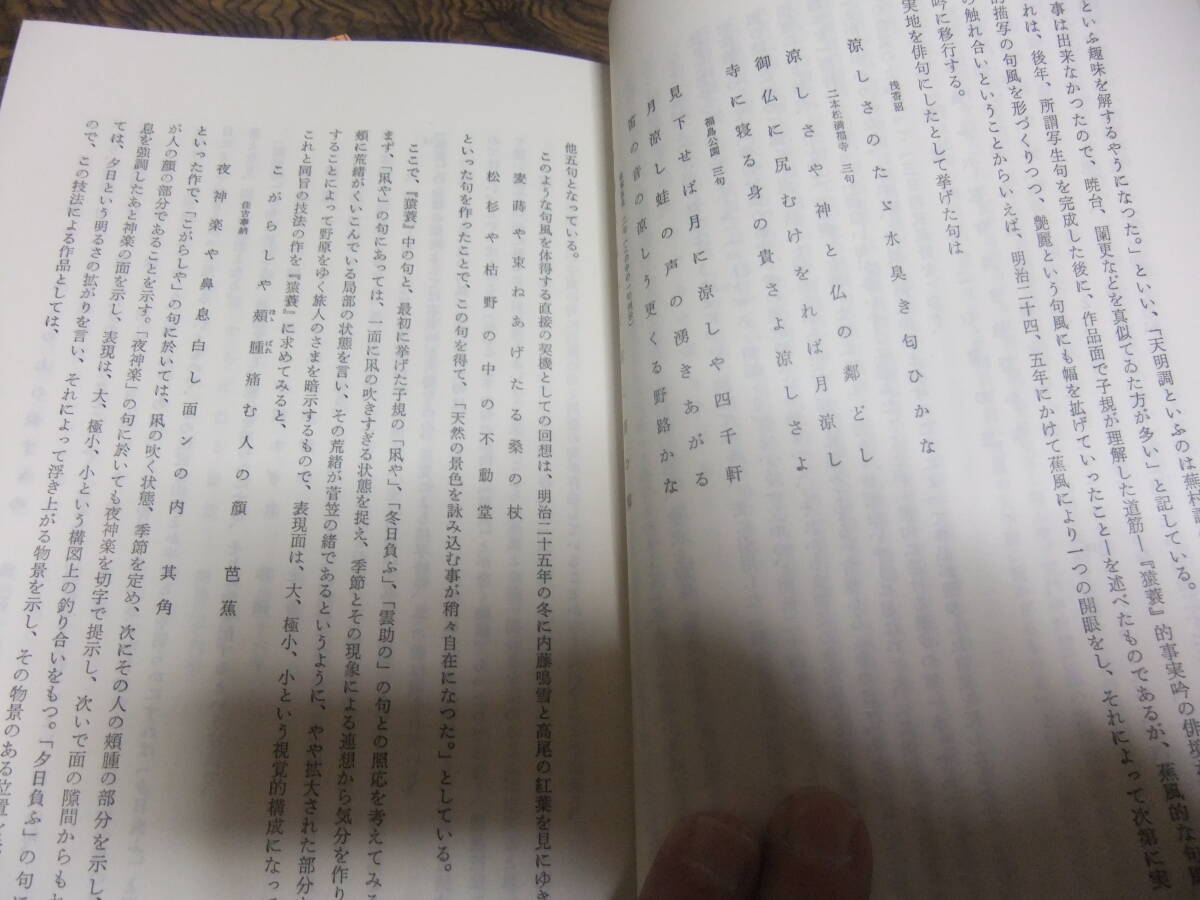 といふ趣味を解するやうになつた。」といい、「天明調といふのは蕪村
事は出来なかつたので、暁台、闌更などを真似てゐた方が多い」と記している。
れは、後年、所謂写生句を完成した後に、作品面で子規が理解した道筋―『猿蓑』的事実吟の俳境
的描写の句風を形づくりつつ、艶麗という句風にも幅を拡げていったこと―を述べたものであるが、蕉風的な句
の触れ合いということからいえば、明治二十四、五年にかけて蕉風により一つの開眼をし、それによって次第に実
吟に移行する。
実地を俳句にしたとして挙げた句は
浅香沼
涼しさのたゞ水臭き匂ひかな
二本松満福寺 三句
涼しさや神と仏の鄰どし
御仏に尻むけをれば月涼し
寺に寝る身の貴さよ涼しさよ
福島公園 三句
見下せば月に涼しや四千軒
月涼し蛙の声の湧きあがる
笛の音の涼しう更くる野路かな
他五句となっている。
このような句風を体得する直接の契機としての回想は、明治二十五年の冬に内藤鳴雪と高尾の紅葉を見にゆき
麦蒔や束ねあげたる桑の杖
松杉や枯野の中の不動堂
といった句を作ったことで、この句を得て、「天然の景色を詠み込む事が稍々自在になつた。」としている。
ここで、『猿蓑』中の句と、最初に挙げた子規の「凩や」、「冬日負ふ」、「雲助の」の句との照応を考えてみる
まず、「凩や」の句にあっては、一面に凩の吹きすぎる状態を捉え、季節とその現象による連想から気分を作り
頬に荒緒がくいこんでいる局部の状態を言い、その荒緒が菅笠の緒であるというように、やや拡大された部分
することによって野原をゆく旅人のさまを暗示するもので、表現面は、大、極小、小という視覚的構成になっ
これと同旨の技法の作を『猿蓑』に求めてみると、
こがらしや頬腫痛む人の顔 芭蕉
住吉奉納
夜神楽や鼻息白し面ンの内 其角
といった作で、「こがらしや」の句に於いては、凩の吹く状態、季節を定め、次にその人の頬腫の部分を示し、
が人の顔の部分であることを示す。「夜神楽」の句に於いても夜神楽を切字で提示し、次いで面の隙間からもれ
息を強調したあと神楽の面を示し、表現は、大、極小、小という構図上の釣り合いをもつ。「夕日負ふ」の句
ては、夕日という明るさの拡がりを言い、それによって浮き上がる物景を示し、その物景のある位置を
ので、この技法による作品としては、